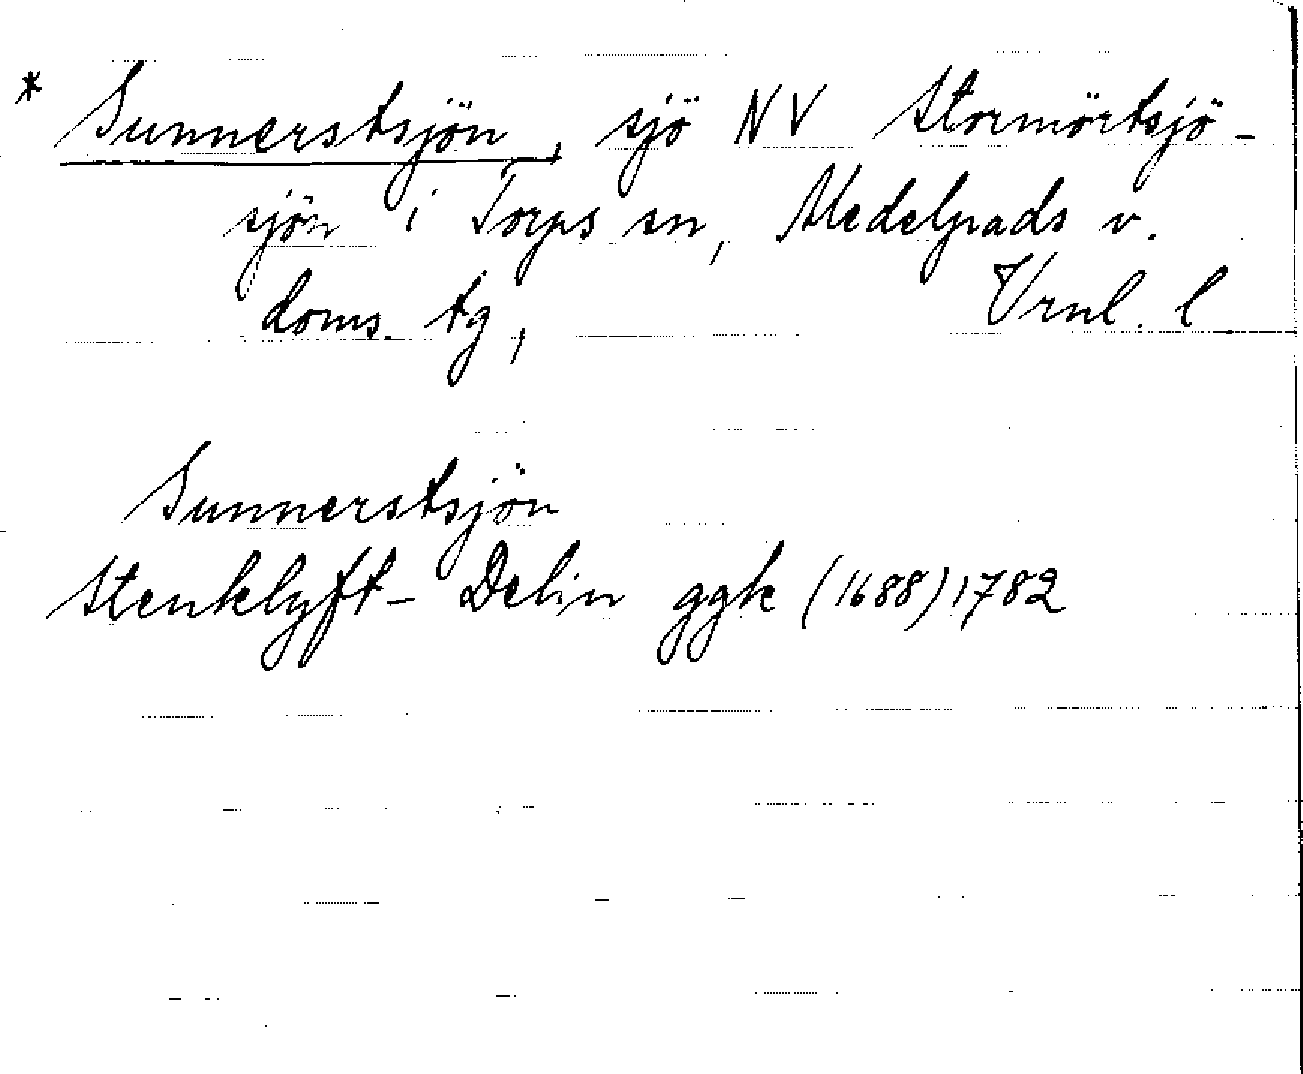 * Sunnerstsjön, sjö NV Stormörtsjö-
sjön i Torps sn, Medelpads v.
doms. tg, Vrnl. l
Sunnerstsjön
Stenklyft- Delin ggk (1688) 1782